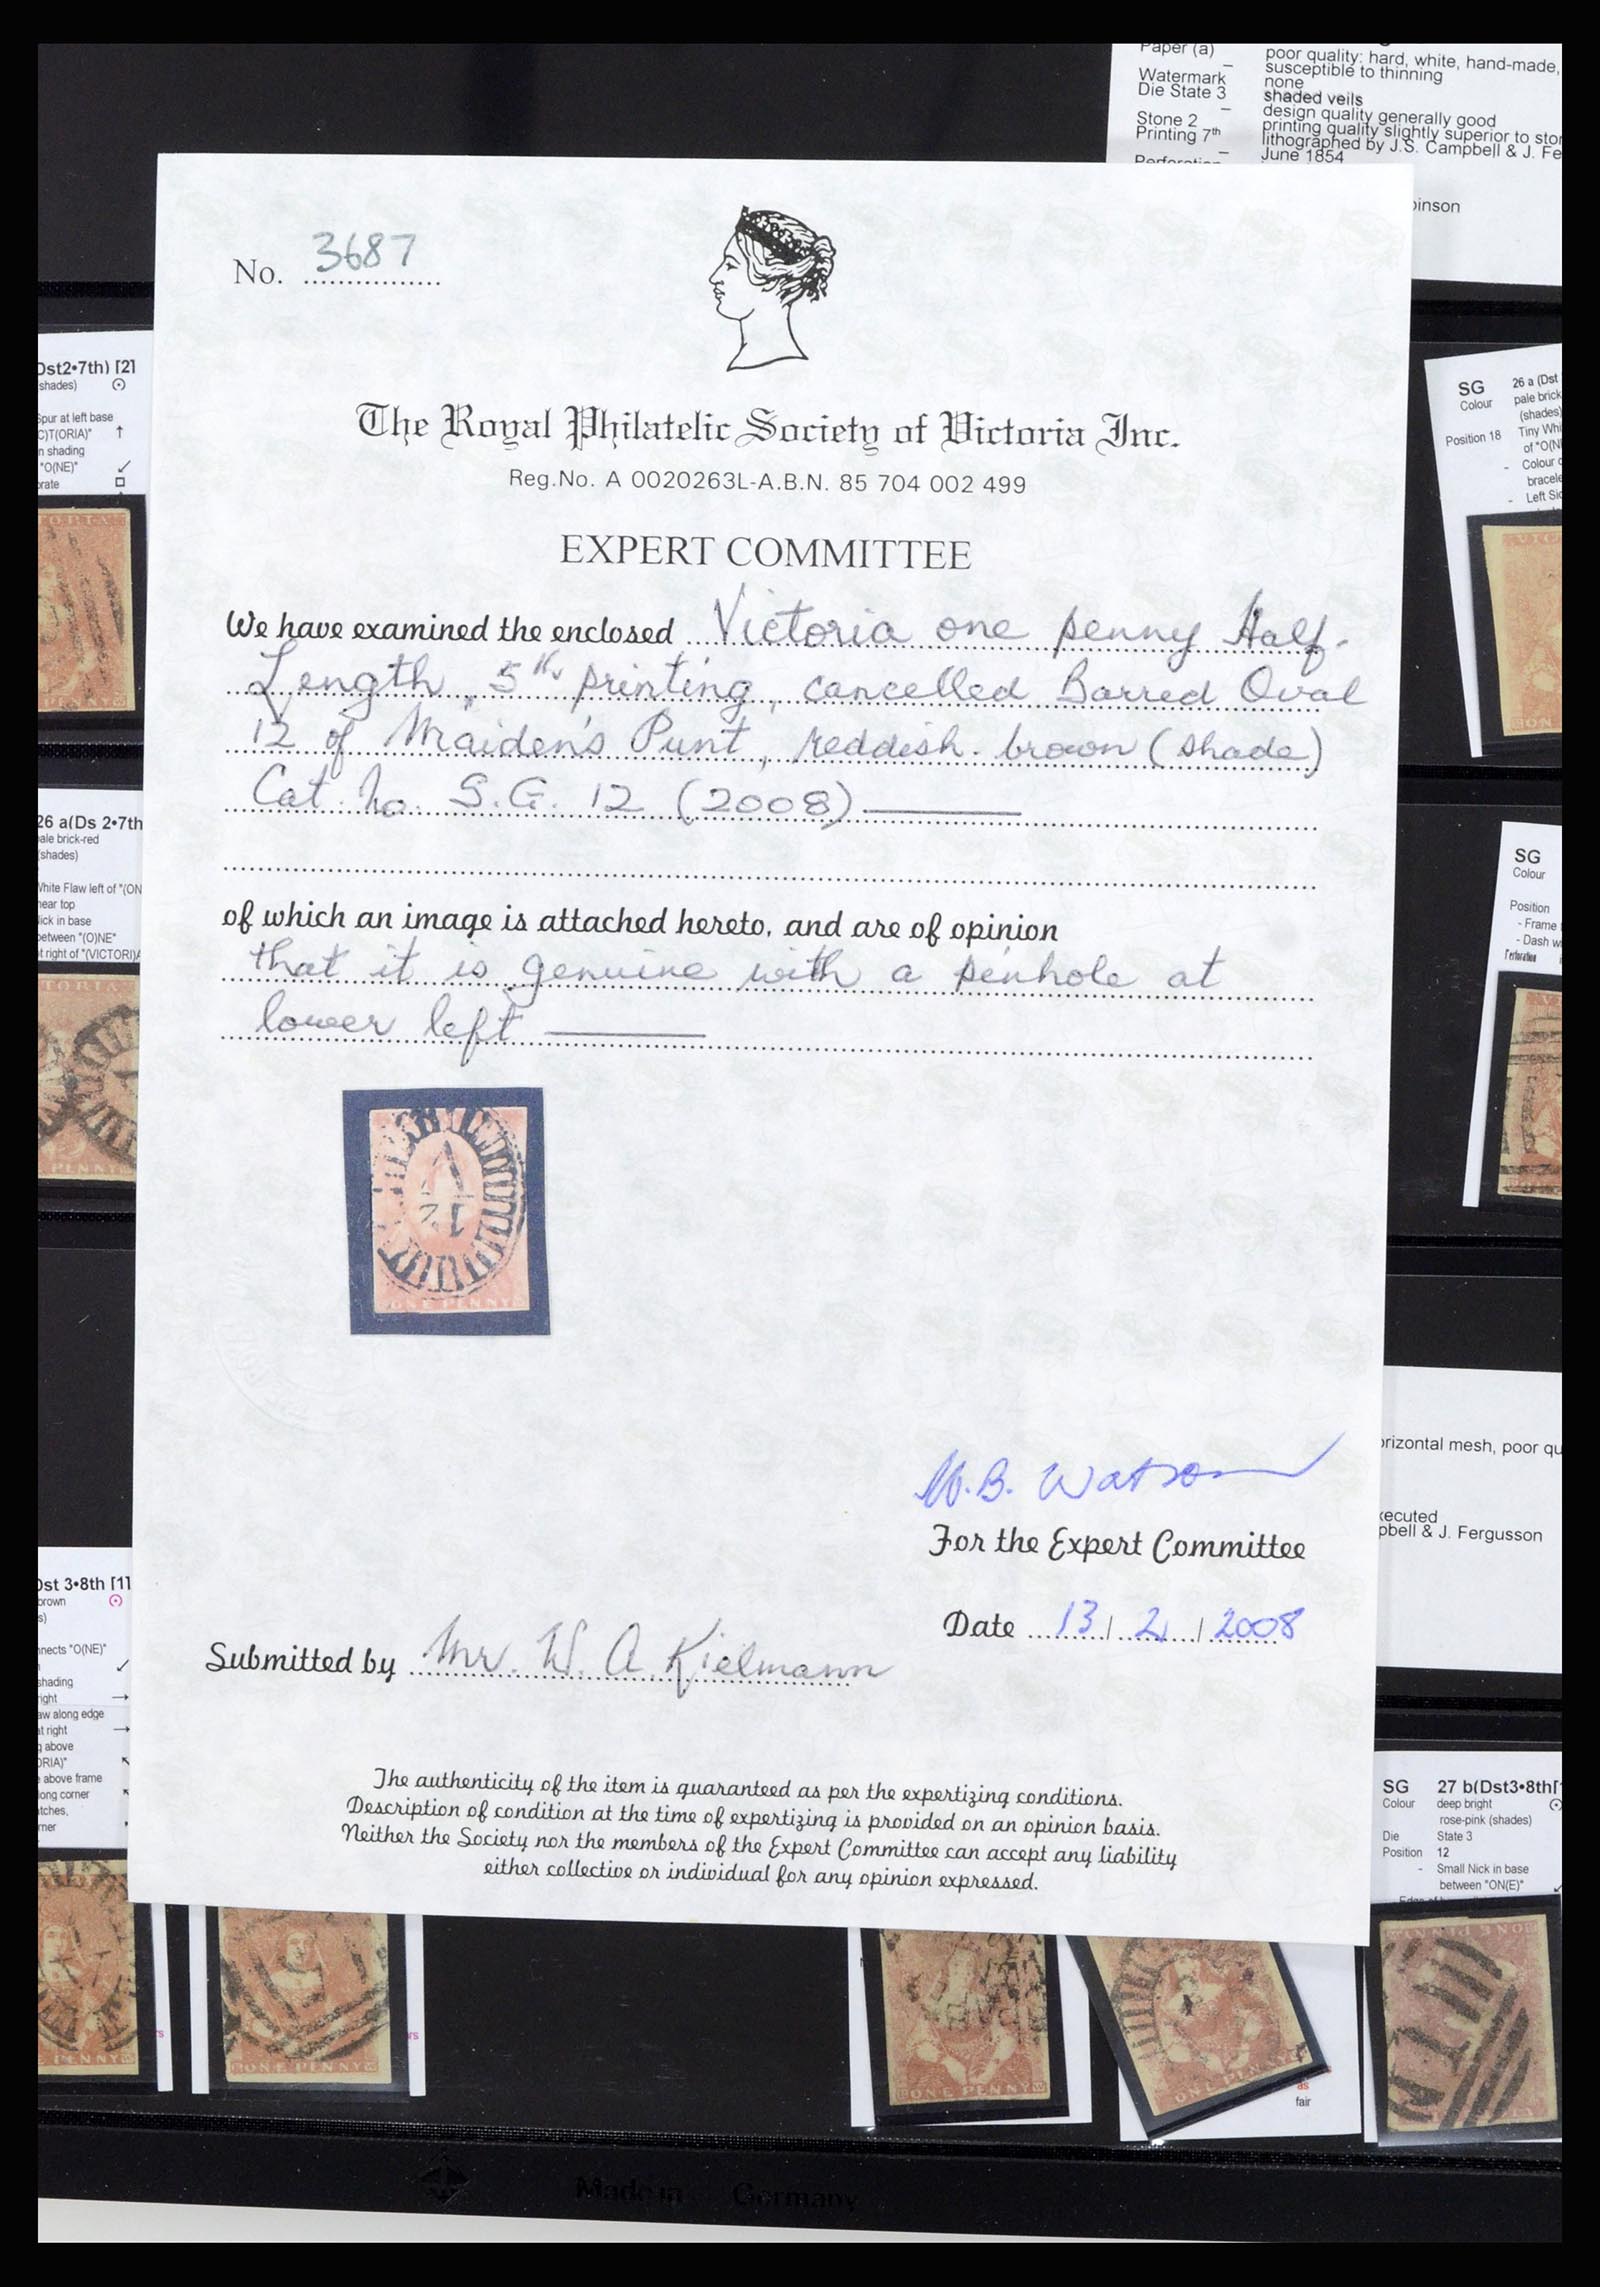 Paper (a)
poor quality: hard, white, hand-made,
susceptible to thinning
Watermark none
Die State 3 shaded veils
design quality generally good
Stone 2 printing quality slightly superior to sto
Printing 7th lithographed by J.S. Campbell & J. Fe
June 1854
binson
No. 3687
The Royal Philatelic Society of Victoria Inc.
Reg.No. A 0020263L-A.B.N. 85 704 002 499
EXPERT COMMITTEE
We have examined the enclosed Victoria one penny Half-
Length, 5th printing, cancelled Barred Oval
12 of Maiden's Punt, reddish-brown (shade)
Cat. No. S.G. 12 (2008)
of which an image is attached hereto, and are of opinion
that it is genuine with a pinhole at
lower left
12
ONE PENNY
W.B. Watson
For the Expert Committee
Date 13/2/2008
Submitted by Mr. W. A. Kielmann
The authenticity of the item is guaranteed as per the expertizing conditions.
Description of condition at the time of expertizing is provided on an opinion basis.
Neither the Society nor the members of the Expert Committee can accept any liability
either collective or individual for any opinion expressed.
Dst2•7th) [2]
shades)
Spur at left base
C)T(ORIA)"
n shading
"O(NE)"
rate
TORIA
26 a(Ds 2•7th
ale brick-red
(shades)
White Flaw left of "(ON
near top
ick in base
between "(O)NE"
t right of "(VICTORI)A
TORIA
PENNY
Dst 3•8th [1]
brown
s)
nnects "O(NE)"
shading
ight
aw along edge
at right
g above
ORIA)"
e above frame
long corner
atches,
rner
SG 26 a (Dst
Colour pale brick
(shades)
Position 18 Tiny Whi
of "O(N
- Colour o
bracele
- Left Sid
VIC
ON
SG
Colour
Position
- Frame
- Dash w
Perforation
orizontal mesh, poor qu
xecuted
pbell & J. Fergusson
SG 27 b(Dst3•8th[
Colour deep bright
rose-pink (shades)
Die State 3
Position 12
- Small Nick in base
between "ON(E)"
ONE PENNY
rs
ONE PENNY
rs
ONE PENNY
ONE PENNY
as
fair
Made in Germany